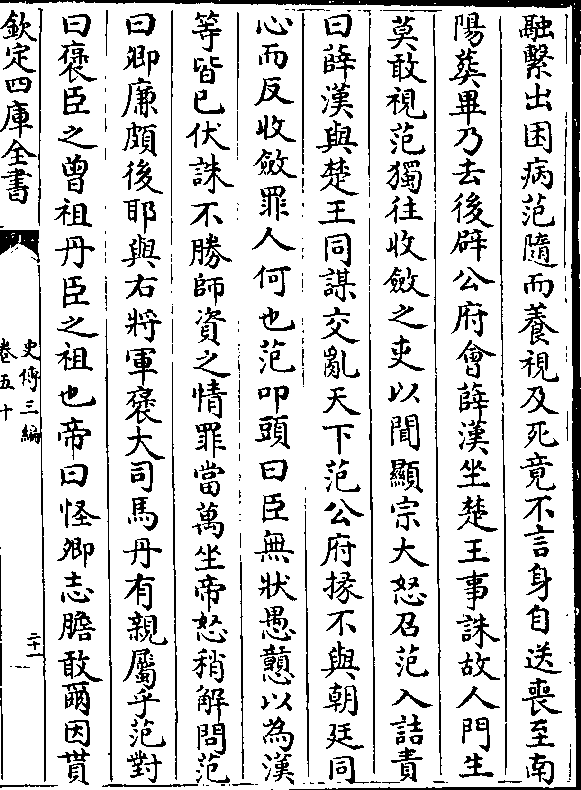 融繫出困病范隨而養視及死竟不言身自送喪至南
陽葬畢乃去後辟公府會薛漢坐楚王事誅故人門生
莫敢視范獨往收斂之吏以聞顯宗大怒召范入詰責
曰薛漢與楚王同謀交亂天下范公府掾不與朝廷同
心而反收斂罪人何也范叩頭曰臣無狀愚戇以為漢
等皆已伏誅不勝師資之情罪當萬坐帝怒稍解問范
曰卿廉頗後耶與右將軍褒大司馬丹有親屬乎范對
曰褒臣之曾祖丹臣之祖也帝曰怪卿志膽敢爾因貰
欽定四庫全書
史傳三編
卷五十
二十一